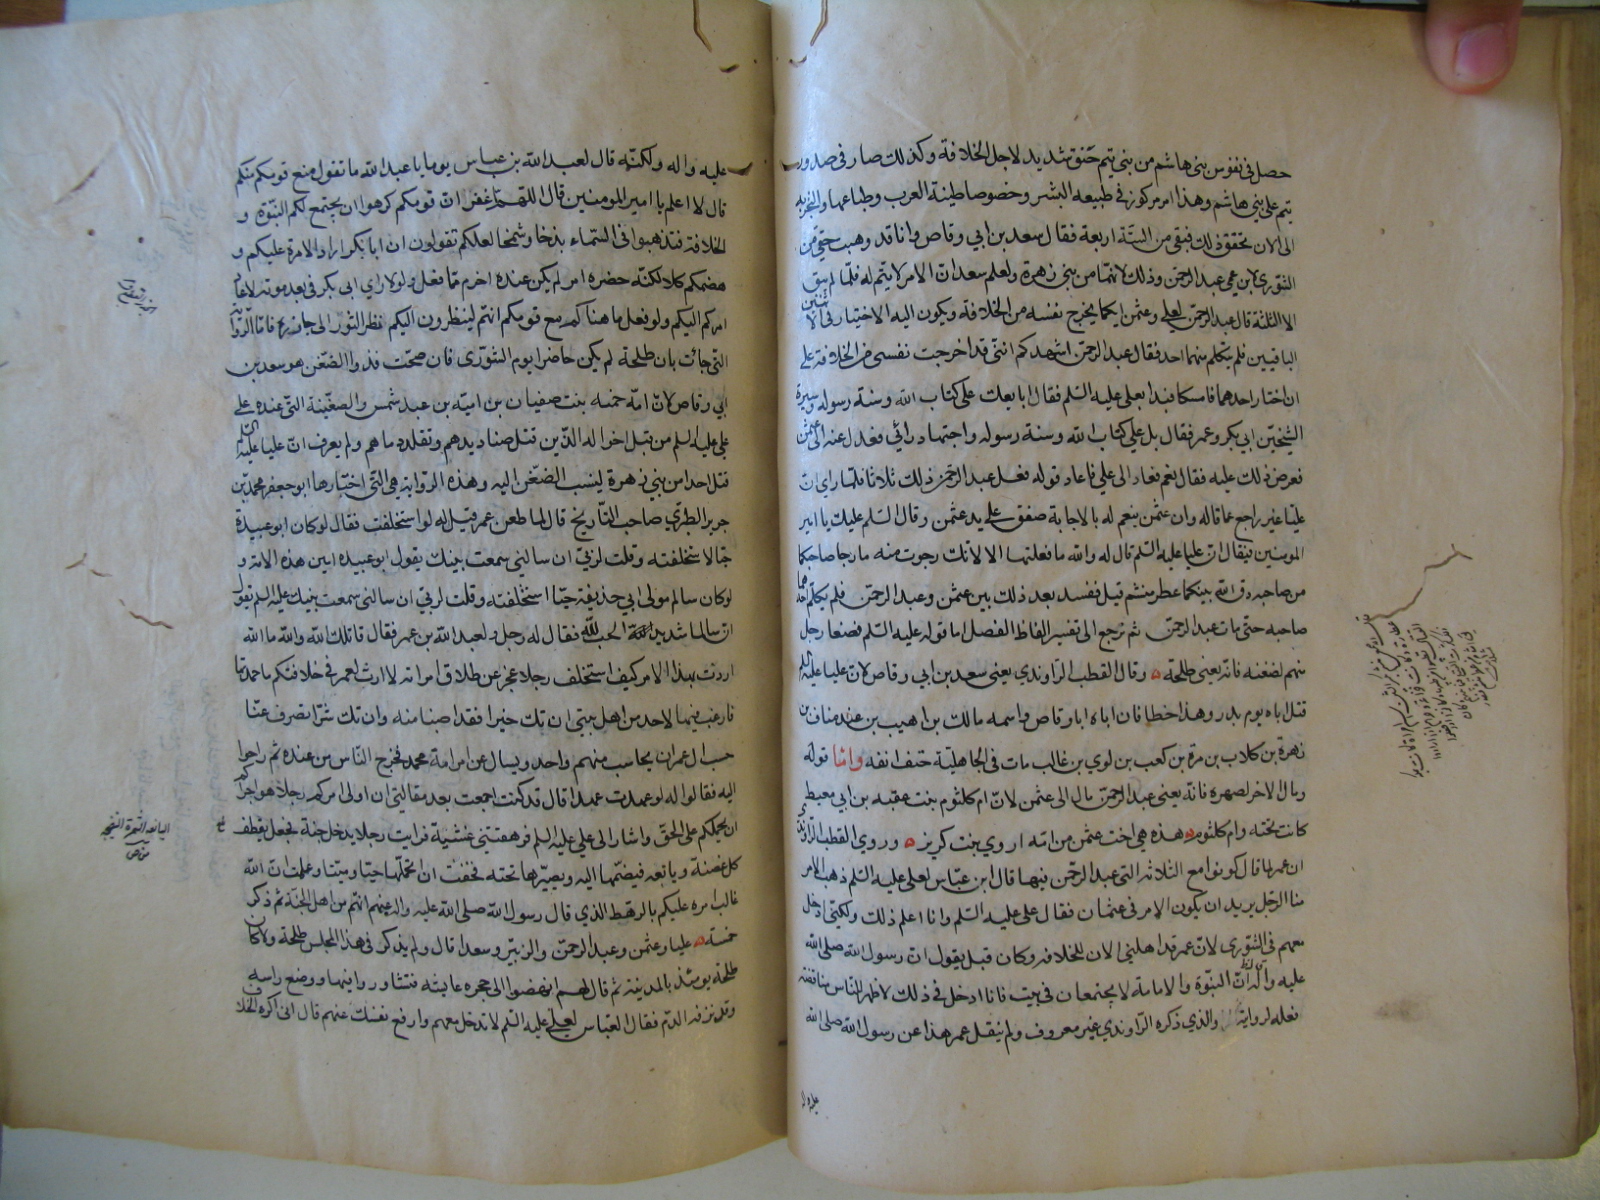 حصل في نفوس بني هاشم من بني تيم حنق شديد لاجل الخلافة وكذلك صار في صدور
تيم على بني هاشم وهذا امر مركوز في طبيعة البشر وخصوصا طينة العرب وطباعها والتجربة
الى الان تحقق ذلك فبقي من الستة اربعة فقال سعد بن ابي وقاص وانا قد وهبت حقي من
الشورى لابن عمي عبد الرحمن وذلك لانهما من بني زهرة ولعلم سعد ان الامر لا يتم له فلما لم يبق
الا الثلثة قال عبد الرحمن لعلي وعثمن ايكما يخرج نفسه من الخلافة ويكون اليه الاختيار في الاثنين
الباقيين فلم يتكلم منهما احد فقال عبد الرحمن اشهدكم انني قد اخرجت نفسي من الخلافة على
ان اختار احدهما فامسكا فبدا بعلي عليه السلم فقال ابايعك على كتاب الله وسنة رسوله وسيرة
الشيخين ابي بكر وعمر فقال بل على كتاب الله وسنة رسوله واجتهاد رائي فعدل عنه الى عثمن
فعرض ذلك عليه فقال نعم فعاد الى علي فاعاد قوله فعل عبد الرحمن ذلك ثلاثا فلما راي ان
عليا غير راجع عما قاله وان عثمن ينعم له بالاجابة صفق على يد عثمن وقال السلم عليك يا امير
المومنين فيقال ان عليا عليه السلم قال له والله ما فعلتها الا لانك رجوت منه ما رجا صاحبكما
من صاحبه دق الله بينكما عطر منشم قيل ففسد بعد ذلك بين عثمن وعبد الرحمن فلم يكلم احدهما
صاحبه حتى مات عبد الرحمن ثم نرجع الى تفسير الفاظ الفصل اما قوله عليه السلم فصغا رجل
منهم لضغنه فانه يعني طلحة وقال القطب الراوندي يعني سعد بن ابي وقاص لان عليا عليه السلم
قتل اباه يوم بدر وهذا خطا فان اباه ابا وقاص واسمه مالك بن اهيب بن عبد مناف بن
زهرة بن كلاب بن مرة بن كعب بن لوي بن غالب مات في الجاهلية حتف انفه واما قوله
ومال الاخر لصهره فانه يعني عبد الرحمن مال الى عثمن لان ام كلثوم بنت عقبه بن ابي معيط
كانت تحته وام كلثوم هذه هي اخت عثمن من امه اروي بنت كريز وروي القطب الراوندي
ان عمر لما قال كونوا مع الثلاثه التي عبد الرحمن فيها قال ابن عباس لعلي عليه السلم ذهب الامر
منا الرجل يريد ان يكون الامر في عثمان فقال علي عليه السلم وانا اعلم ذلك ولكني ادخل
معهم في الشورى لان عمر قد اهلني الان للخلافه وكان قبل يقول ان رسول الله صلى الله
عليه واله قال ان النبوة والامامة لا يجتمعان في بيت فانا ادخل في ذلك لاظهر للناس مناقضة
فعله لروايته والذي ذكره الراوندي غير معروف ولم ينقل عمر هذا عن رسول الله صلى الله
عليه واله
عليه واله ولكنه قال لعبد الله بن عباس يوما يا عبد الله ما تقول منع قومكم منكم
قال لا اعلم يا امير المومنين قال اللهم غفر ان قومكم كرهوا ان يجتمع لكم النبوة و
الخلافة فتذهبوا في السماء بذخا وشمخا لعلكم تقولون ان ابا بكر اراد الامرة عليكم و
هضمكم كلا لكنه حضره امر لم يكن عنده احزم مما فعل ولولا راي ابي بكر في بعد موته لاعاد
امركم اليكم ولو فعل ما هناكم مع قومكم انهم لينظرون اليكم نظر الثور الى جازره فاما الرواية
التي جائت بان طلحة لم يكن حاضرا يوم الشورى فان صحت فذو الضغن هو سعد بن
ابي وقاص لان امه حمنه بنت صفيان بن اميه بن عبد شمس والضغينة التي عنده على
علي عليه السلم من قبل اخواله الذين قتل صناديدهم وتقلد دماهم ولم يعرف ان عليا عليه السلم
قتل احدا من بني زهرة لينسب الضغن اليه وهذه الرواية هي التي اختارها ابو جعفر محمد بن
جرير الطبري صاحب التاريخ قال لما طعن عمر قيل له لو استخلفت فقال لو كان ابو عبيدة
حيا لاستخلفته وقلت لربي ان سالني سمعت نبيك يقول ابو عبيده امين هذه الامة و
لو كان سالم مولى ابي حذيفة حيا استخلفته وقلت لربي ان سالني سمعت نبيك عليه السلم يقول
ان سالما شديد الحب لله فقال له رجل ول عبد الله بن عمر فقال قاتلك الله والله ما الله
اردت بهذا الامر كيف استخلف رجلا عجز عن طلاق امراته لا ارث لعمر في خلافتكم ما حمدتها
فارغب فيها لاحد من اهل بيتي ان تك خيرا فقد اصبنا منه وان تك شرا يصرف عنا
حسب ال عمر ان يحاسب منهم واحد ويسال عن امر امة محمد فخرج الناس من عنده ثم راحوا
اليه فقالوا له لو عهدت عهدا قال قد كنت اجمعت بعد مقالتي ان اولي امركم رجلا هو احراكم
ان يحملكم على الحق واشار الى علي عليه السلم فرهقتني غشية فرايت رجلا يدخل جنة فجعل يقطف
كل غضة ويانعه فيضمها اليه ويصيرها تحته فخفت ان اتحملها حيا وميتا وعلمت ان الله
غالب امره عليكم بالرهط الذي قال رسول الله صلى الله عليه واله عنهم انهم من اهل الجنة ثم ذكر
خمسة عليا وعثمن وعبد الرحمن والزبير وسعدا قال ولم يذكر في هذا المجلس طلحة ولا كان
طلحة يومئذ بالمدينة ثم قال لهم انهضوا الى حجرة عايشه فتشاوروا فيها ووضع راسه
وقد نزفه الدم فقال العباس لعلي عليه السلم لا تدخل معهم وارفع نفسك عنهم قال اني اكره الخلا
اليانعه الثمرة النضيجه